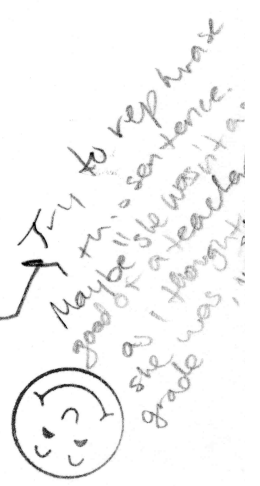 Try to rephrase
this sentence.
Maybe "she wasn't as
good of a teacher
as I thought
she was,
grade